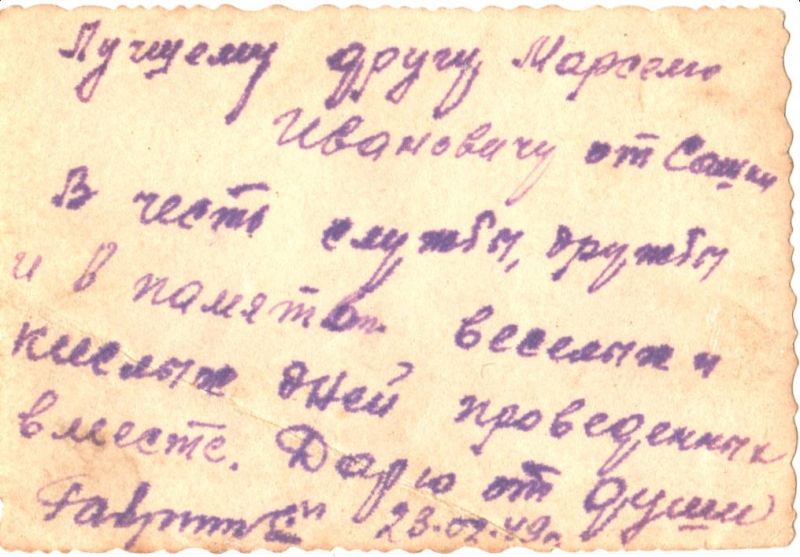 Лучшему другу Марселю
Ивановичу от Сашки
В честь службы, дружбы
и в память веселых и
кислых дней проведенных
вместе. Дарю от души
23.02.49г.